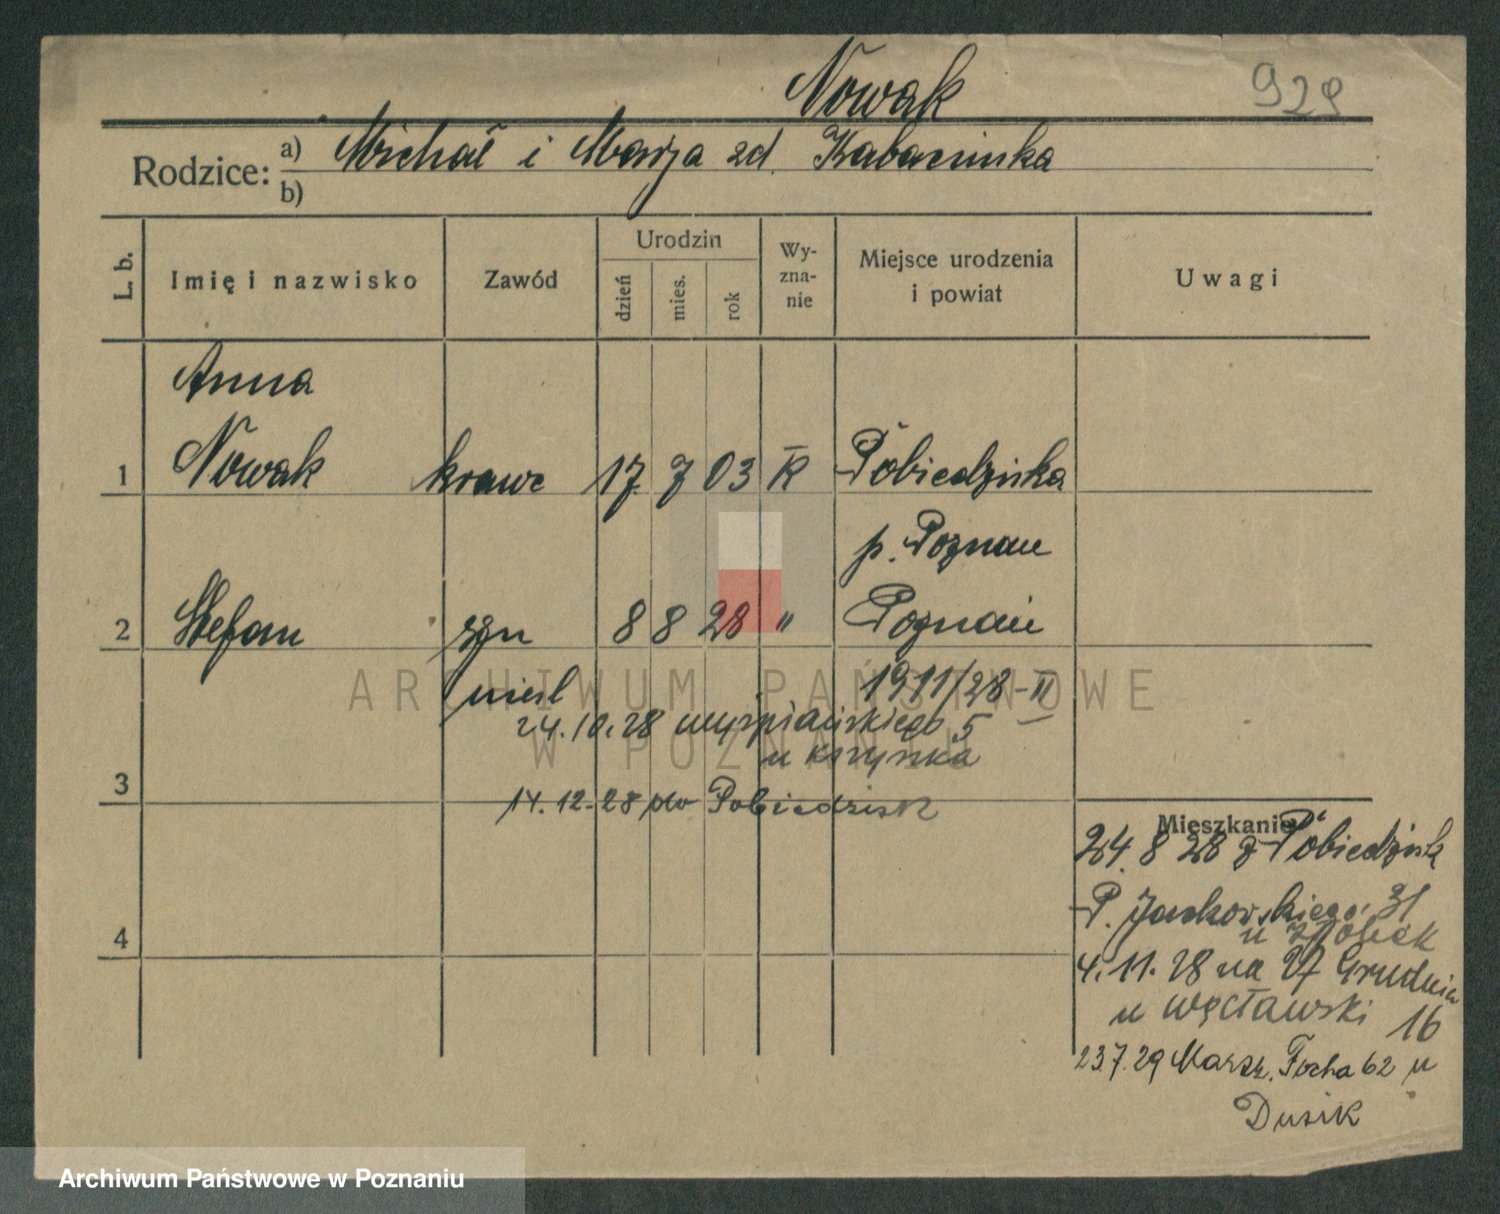 Nowak
929
Rodzice: a) Michał i Marja zd. Kabacinska
b)
L. b.
Imię i nazwisko
Zawód
Urodzin
dzień
mies.
rok
Wy-
zna-
nie
Miejsce urodzenia
i powiat
Uwagi
Anna
1 Nowak krawc 17 7 03 R Pobiedziska
p. Poznań
2 Stefan syn 8 8 28 " Poznań
niesl 1911/28-II
24.10.28 Wyspiańskiego 5
u
3
14.12.28 do Pobiedzisk
Mieszkanie
24.8 28 z Pobiedzisk
P. Jackowskiego 31
u
4
4.11.28 na 27 Grudnia
u Węcławski 16
23.7.29 Marsz. Focha 62 u
Dusik
ARCHIWUM PAŃSTWOWE
W POZNANIU
Archiwum Państwowe w Poznaniu